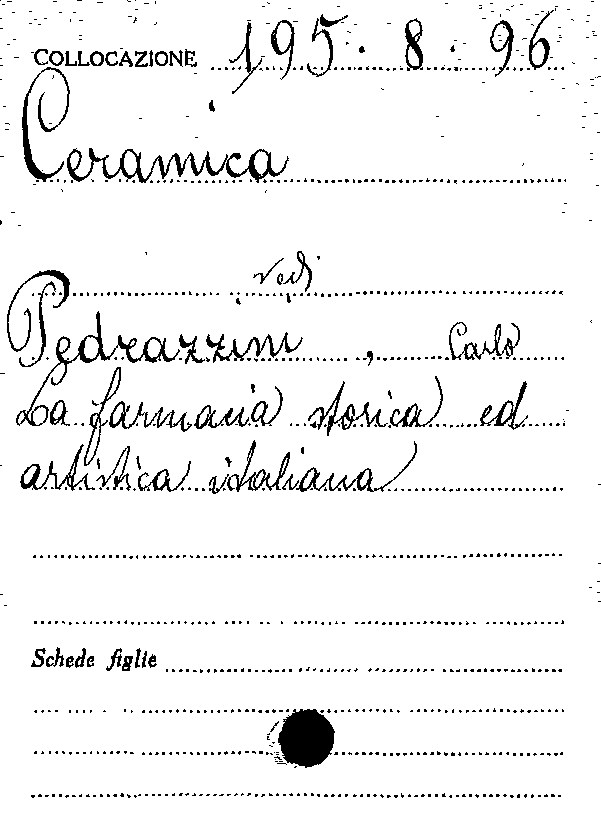 COLLOCAZIONE 195. 8. 96
Ceramica
vedi
Pedrazzini, Carlo
La farmacia storica ed
artistica italiana
Schede figlie